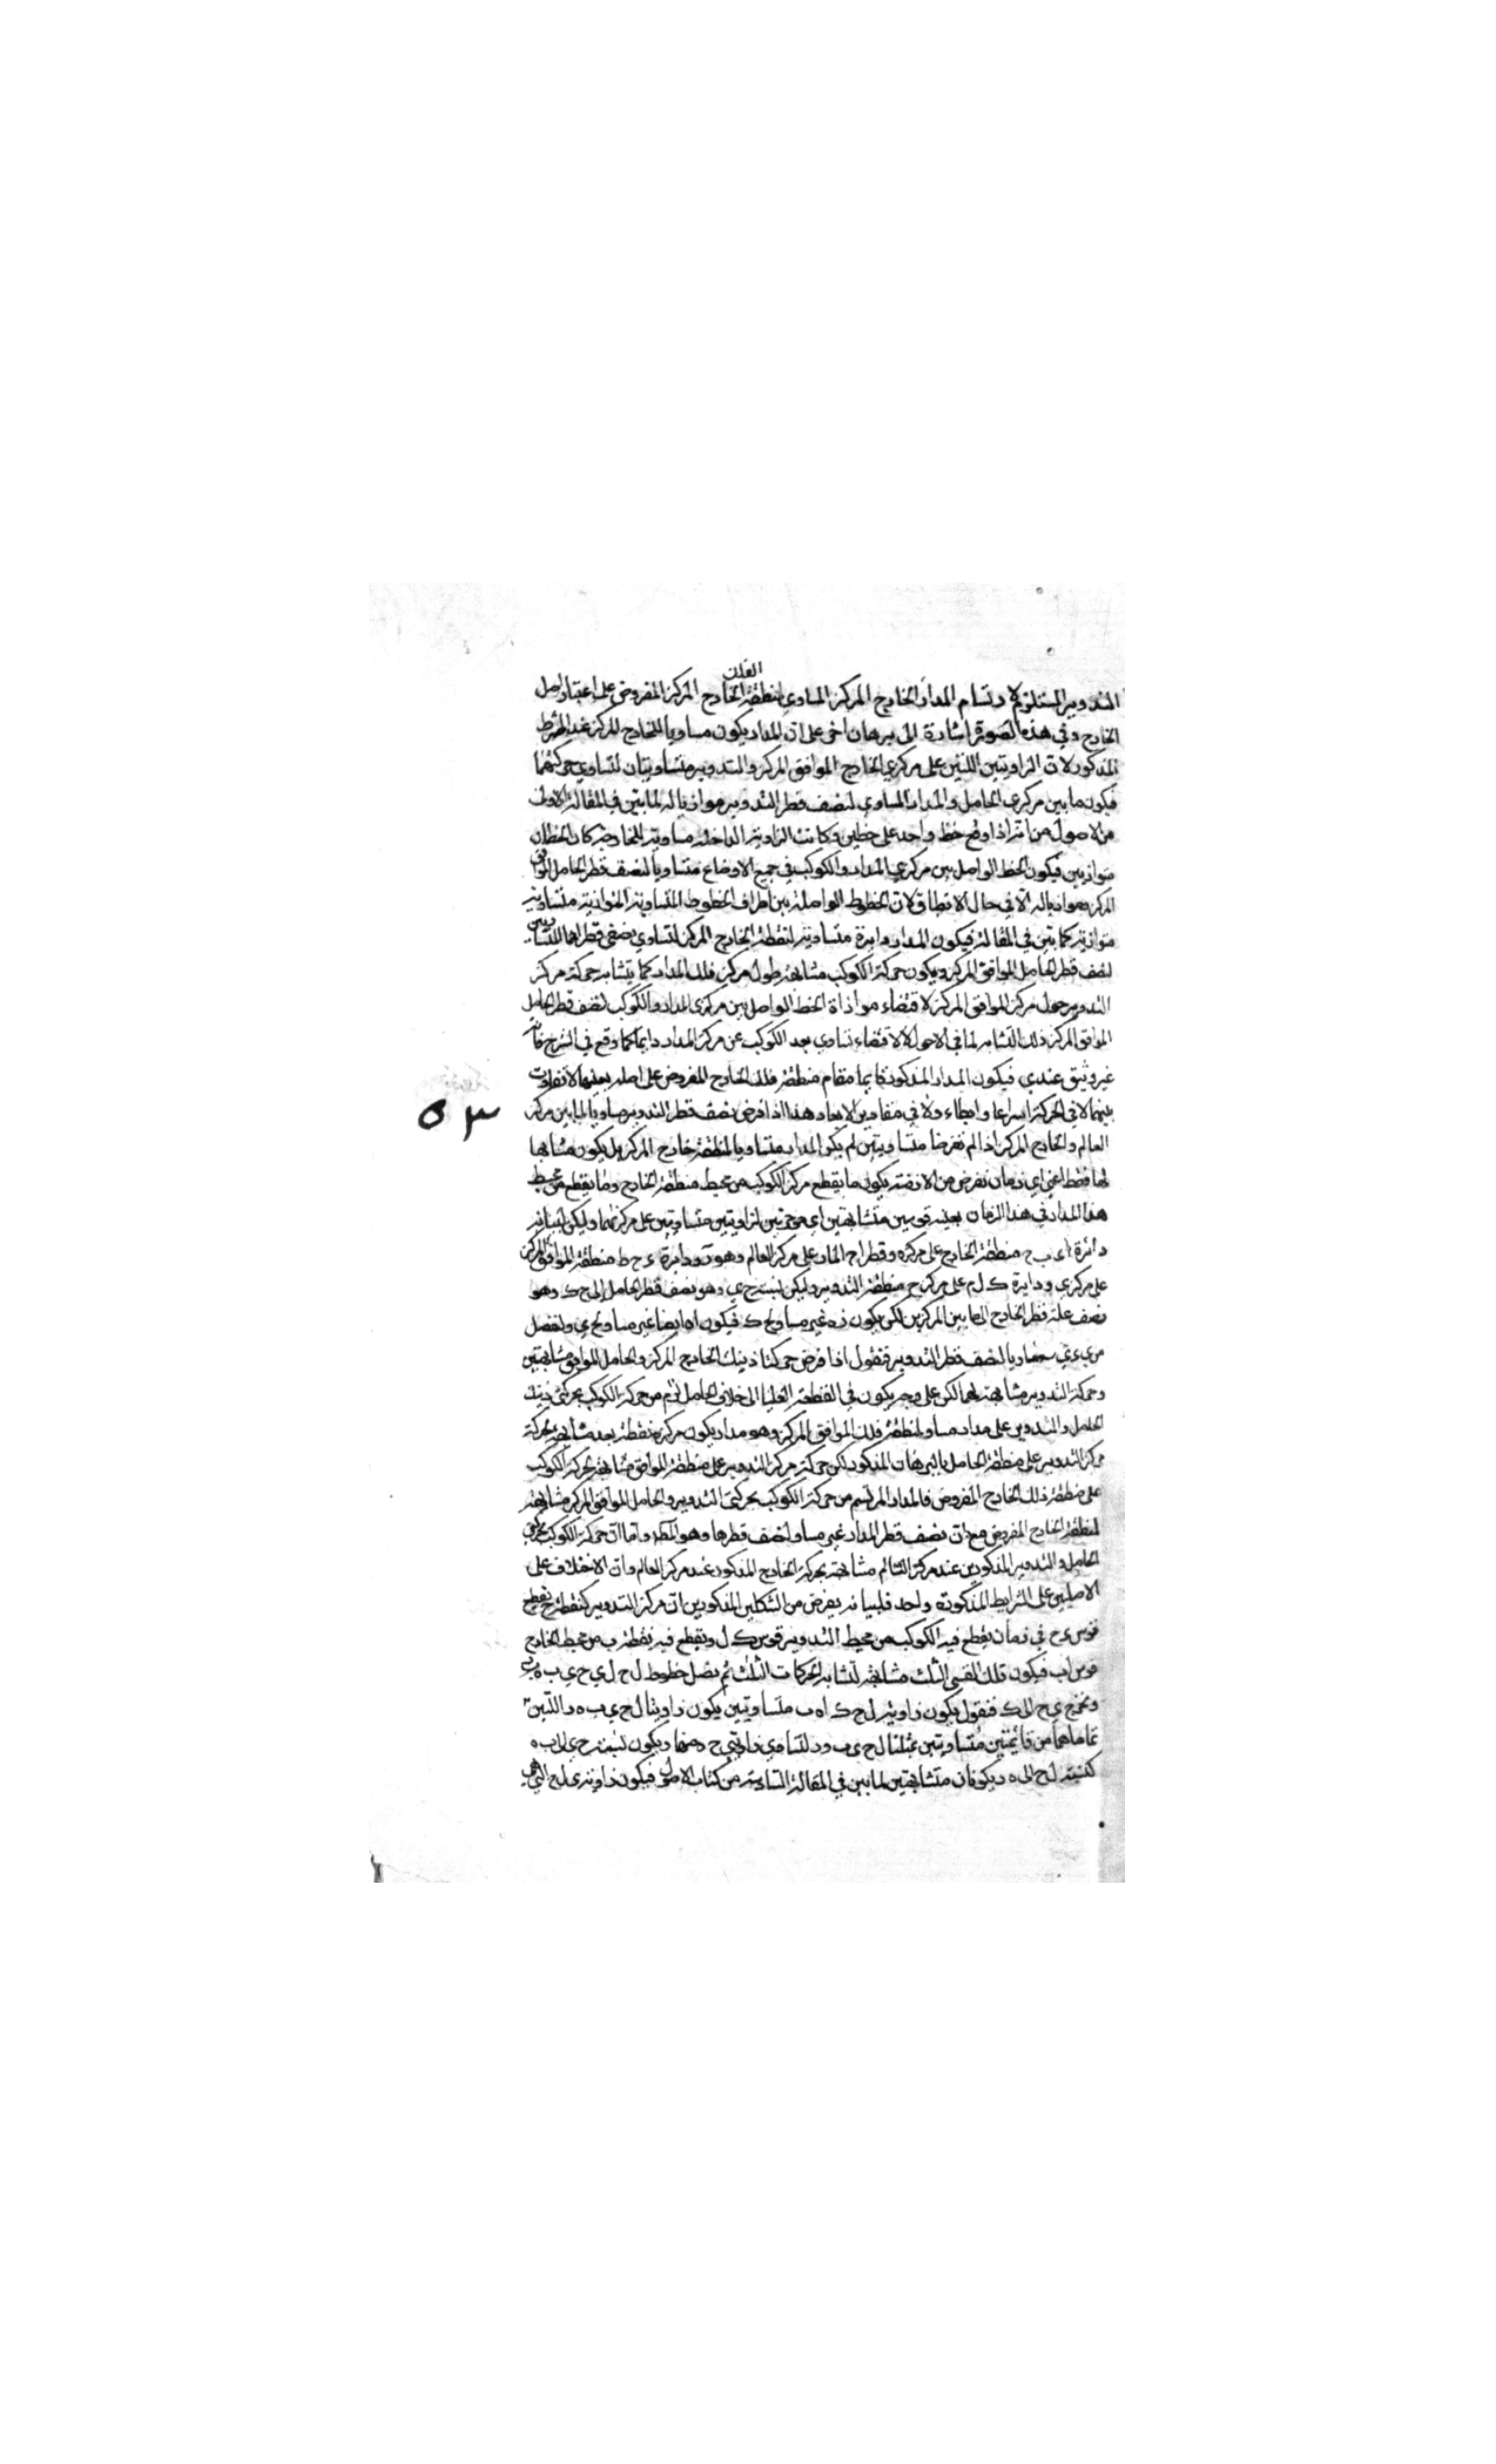 الفلك
التدوير المستلزم لارتسام المدار الخارج المركز المساوي لمنطقة الخارج المركز المفروض على اعتبار اصل
الخارج وفي هذه الصورة اشارة الى برهان اخر على ان المدار يكون مساويا للخارج المركز عند الشرط
المذكور لان الزاويتين اللتين على مركزي الخارج الموافق المركز والتدوير متساويتان لتساوي حركتهما
فيكون ما بين مركزي الحامل والمدار المساوي لنصف قطر التدوير موازيا له لما بين في المقالة الاولى
من الاصول من انه اذا وقع خط واحد على خطين وكانت الزاوية الداخلة مساوية للخارجة كان الخطان
متوازيين فيكون الخط الواصل بين مركزي المدار والكوكب في جميع الاوضاع متساويا لنصف قطر الحامل الموافق
المركز موازيا له الا في حال الانطباق لان الخطوط الواصلة بين اطراف الخطوط المتساوية المتوازية متساوية
متوازية كما بين في المقالة فيكون المدار دايرة متساوية لمنطقة الخارج المركز لتساوي نصفي قطراهما المتساويين
لنصف قطر الحامل الموافق المركز ويكون حركة الكوكب متشابهة حول مركز فلك المدار كما يتشابه حركة مركز
التدوير حول مركز الموافق المركز لاقتضاء موازاة الخط الواصل بين مركزي المدار والكوكب لنصف قطر الحامل
الموافق المركز ذلك التشابه لما في الاحوال لا لاقتضاء تساوي بعد الكوكب عن مركز المدار دايما كما وقع في الشرح فانه
غير وثيق عندي فيكون المدار المذكور قايما مقام منطقة فلك الخارج المفروض على اصله بعينها لا تفاوت
بينهما لا في الحركة اسراعا وابطاء ولا في مقادير الابعاد هذا اذا فرض نصف قطر التدوير مساويا لما بين مركز
٥٣
العالم والخارج المركز اذا لم نفرضا متساويتين لم يكن المدار متساويا لمنطقة خارج المركز بل يكون مشابها
لها فقط اعني اي زمان نفرض من الازمنة يكون ما يقطع مركز الكوكب من محيط منطقة الخارج وما يقطع من محيط
هذا المدار في هذا الزمان بعينه قوسين متشابهتين اي موترتين لزاويتين متساويتين على مركزيهما وليكن لبيانه
دائرة منطقة الخارج على مركزه وقطر المار على مركز العالم وهو ودايرة ء ح ط منطقة الموافق المركز
على مركز ي ودايرة ك ل م على مركز ح منطقة التدوير وليكن نسبة ح ي وهو نصف قطر الحامل الى ح ك وهو
نصف قطر الخارج الى ما بين المركزين لكن يكون غير مساو لح ك فيكون ا ه ايضا غير مساو لح ي ولنفصل
من ي متساويا لنصف قطر التدوير فنقول اذا فرض حركتا ذينك الخارج المركز والحامل الموافق متشابهتين
وحركة التدوير مشابهة لهما لكن على وجه يكون في القطعة العليا الى خلاف الحامل لزم من حركة الكوكب بحركتي ذينك
الحامل والتدوير على مدار مساو لمنطقة فلك الموافق المركز وهو مدار يكون مركزه نقطة بعده مشابهة لحركة
مركز التدوير على منطقة الحامل بالبرهان المذكور لكن حركة مركز التدوير على منطقة الموافق مشابهة لحركة الكوكب
على منطقة ذلك الخارج المفروض فالمدار المرتسم من حركة الكوكب بحركتي التدوير والحامل الموافق المركز مشابهة
لمنطقة الخارج المفروض مع ان نصف قطر المدار غير مساو لنصف قطرها وهو المطلوب واما ان حركة الكوكب بحركتي
الحامل والتدوير المذكورين عند مركز العالم مشابهة لحركة الخارج المذكور عند مركز العالم وان الاختلاف على
الاصلين على الشرايط المذكورة واحد فلبيانه يفرض من الشكلين المذكورين ان مركز التدوير كنقطة ح يقطع
قوس ء ح في زمان يقطع فيه الكوكب من محيط التدوير قوس ك ل ويقطع فيه نقطة ب من محيط الخارج
قوس اب فيكون تلك القسي الثلث متشابهة لتشابه الحركات الثلث ثم نصل خطوط ل ح ل ي ح ي ب ه
ونخرج ي ح الى ك فنقول يكون زاويتا ل ح ك ا ه ب متساويتين يكون زاويتا ل ح ي ب ه د اللتين
تمامهما من قائمتين متساويتين فمثلثا ل ح ي ب ه د لتساوي زاويتي ح ه منهما ويكون نسبة ح ي الى ب ه
كنسبة ل ح الى ه د يكونان متشابهتين لما بين في المقالة السادسة من كتاب الاصول فيكون زاوية ي ل ح التي هي